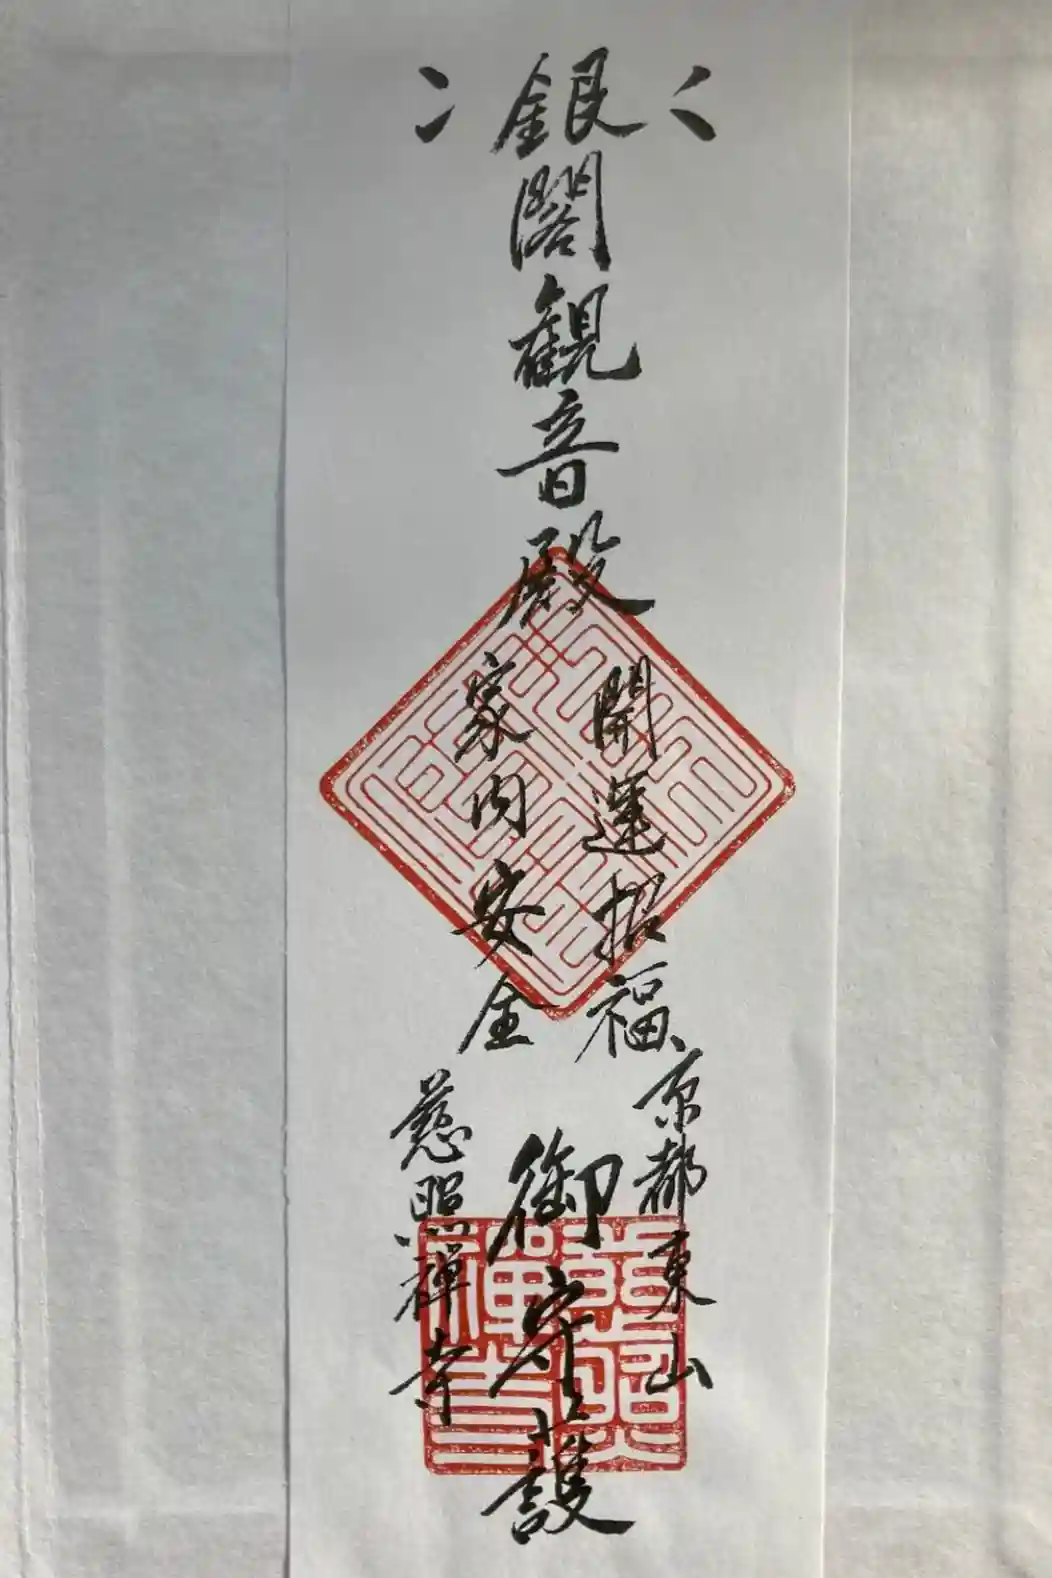 銀閣観音殿
開運招福
家内安全
京都東山
御守護
慈照禅寺
慈照禅寺